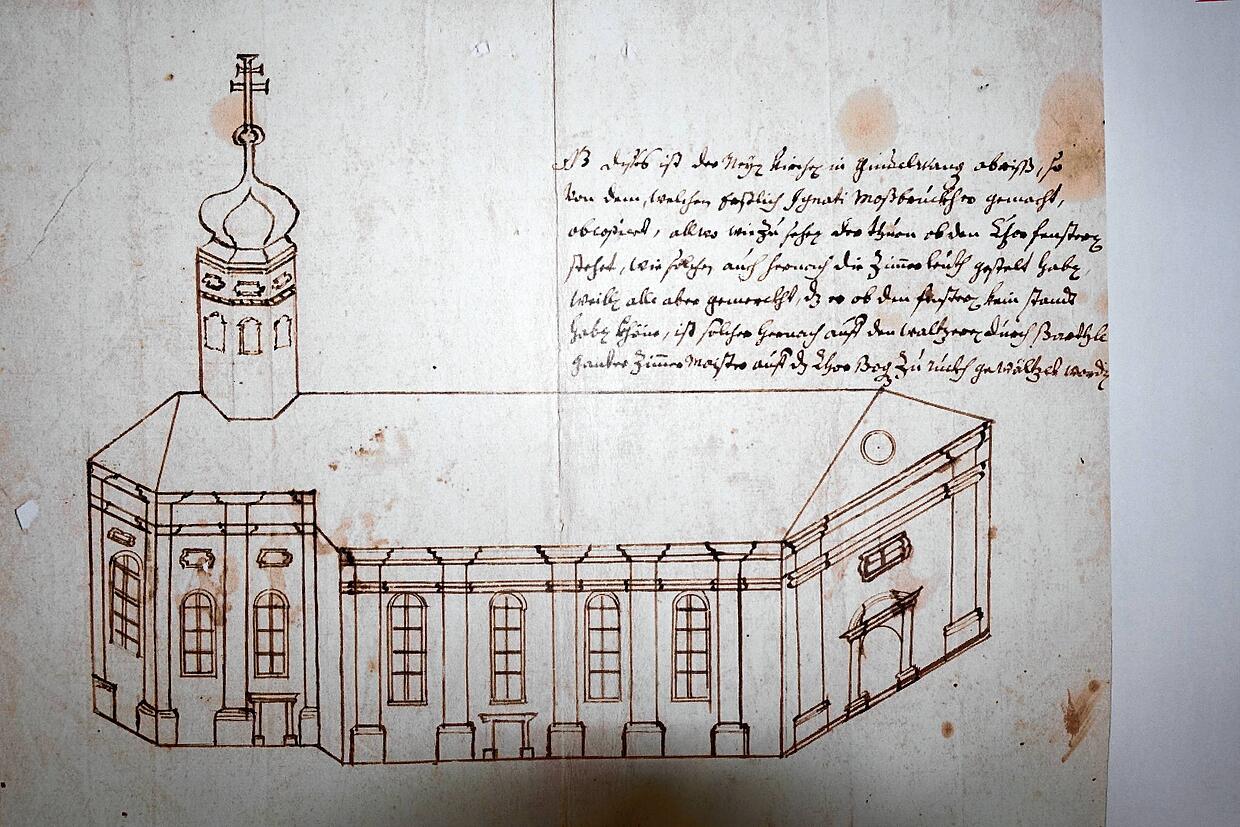 NB dises ist der Neÿen Kirchen in Ginselwang abriss, so
von dem, welchen erstlich Ignati Moßbruckher gemacht,
abcopiert, allwo wie zu sehen der thurn ob den Chor fenstern
stehet, wie solchen auch hernach die Zimmerleuth gestelt haben,
weilen alle aber gemerckht, dz er ob den fenstern kein standt
haben khöne, ist solcher hernach auff den waltzeren durch Barthle
Zimmer Maister auff dz Chor Bog zu ruckh gewältzet worden